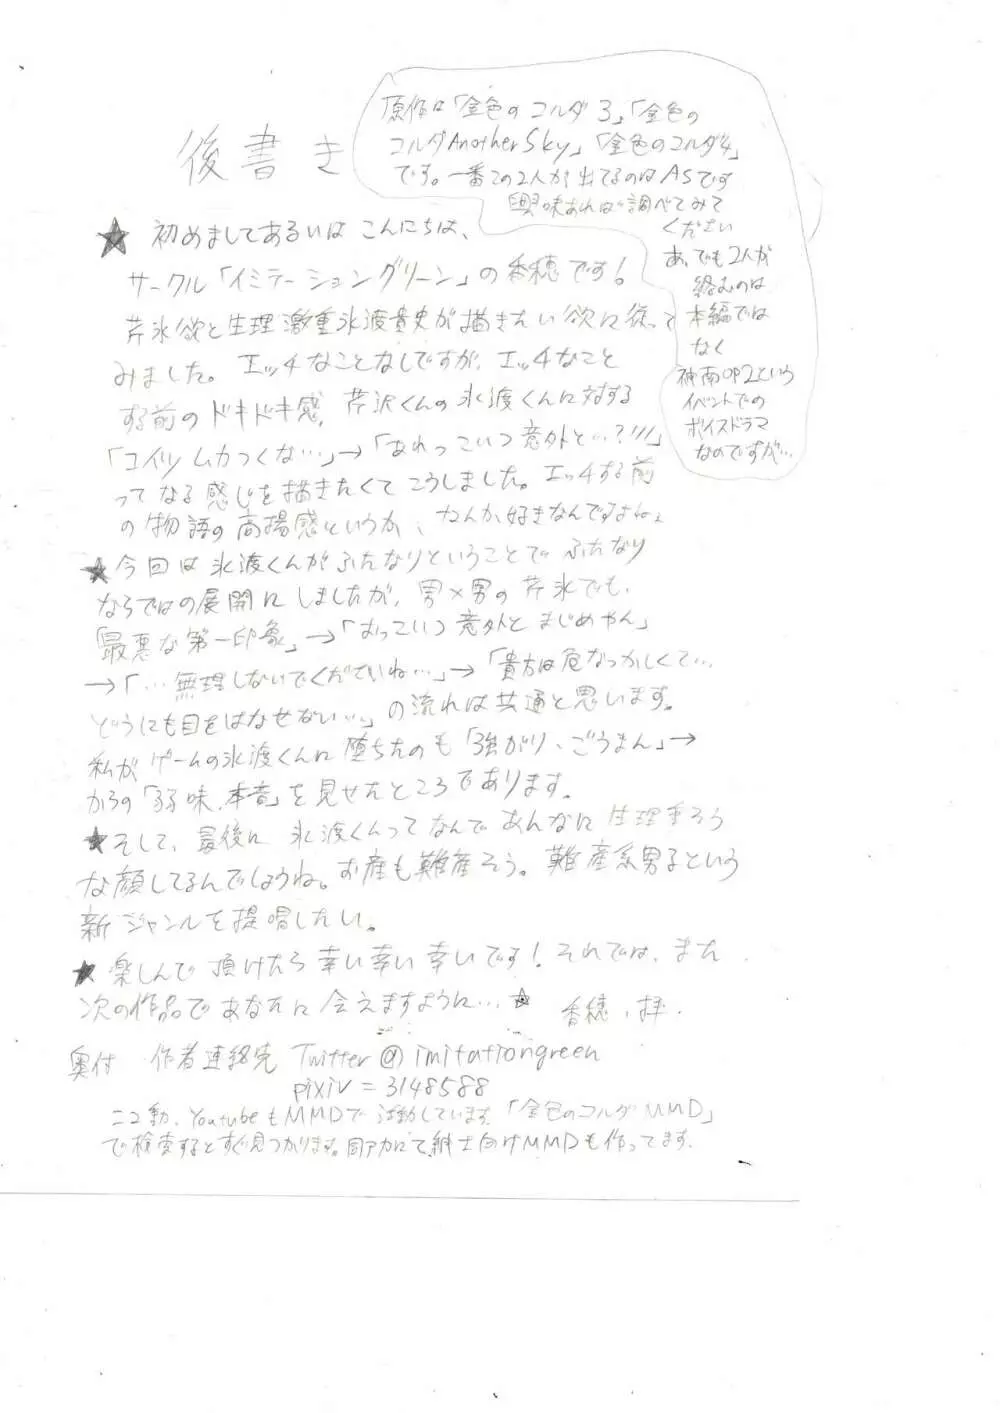 後書き
原作は「金色のコルダ3」「金色の
コルダAnotherSky」「金色のコルダ4」
です。一番この2人が出てるのはASです
興味あれば調べてみて
ください
あ、でも2人が
絡むのは
本編では
なく
神南OP2という
イベントでの
ボイスドラマ
なのですが…
★ 初めましてあるいはこんにちは、
サークル「イミテーショングリーン」の香穂です!
芹氷欲と生理激重氷渡貴史が描きたい欲に従って
みました。エッチなことなしですが、エッチなこと
する前のドキドキ感、芹沢くんの氷渡くんに対する
「コイツムカつくな…」→「あれっこいつ意外と…?!!!」
ってなる感じを描きたくてこうしました。エッチする前
の物語の高揚感というか、なんか好きなんですよね。
★今回は氷渡くんがふたなりということでふたなり
ならではの展開にしましたが、男×男の芹氷でも、
「最悪な第一印象」→「おっこいつ意外とまじめやん」
→「…無理しないでくださいね…」→「貴方は危なっかしくて…
どうにも目をはなせない…」の流れは共通と思います。
私がゲームの氷渡くんに堕ちたのも「強がり、ごうまん」→
からの「弱味、本音」を見せたところであります。
★そして、最後に氷渡くんってなんであんなに生理重そう
な顔してるんでしょうね。お産も難産そう。難産系男子という
新ジャンルを提唱したい。
★楽しんで頂けたら幸い幸い幸いです!それでは、また
次の作品であなたに会えますように…☆ 香穂、拝.
奥付 作者連絡先 Twitter@imitationgreen
pixiv=3148588
ニコ動、YoutubeもMMDで活動しています。「金色のコルダMMD」
で検索するとすぐ見つかります。同アカにて紳士向けMMDも作ってます.